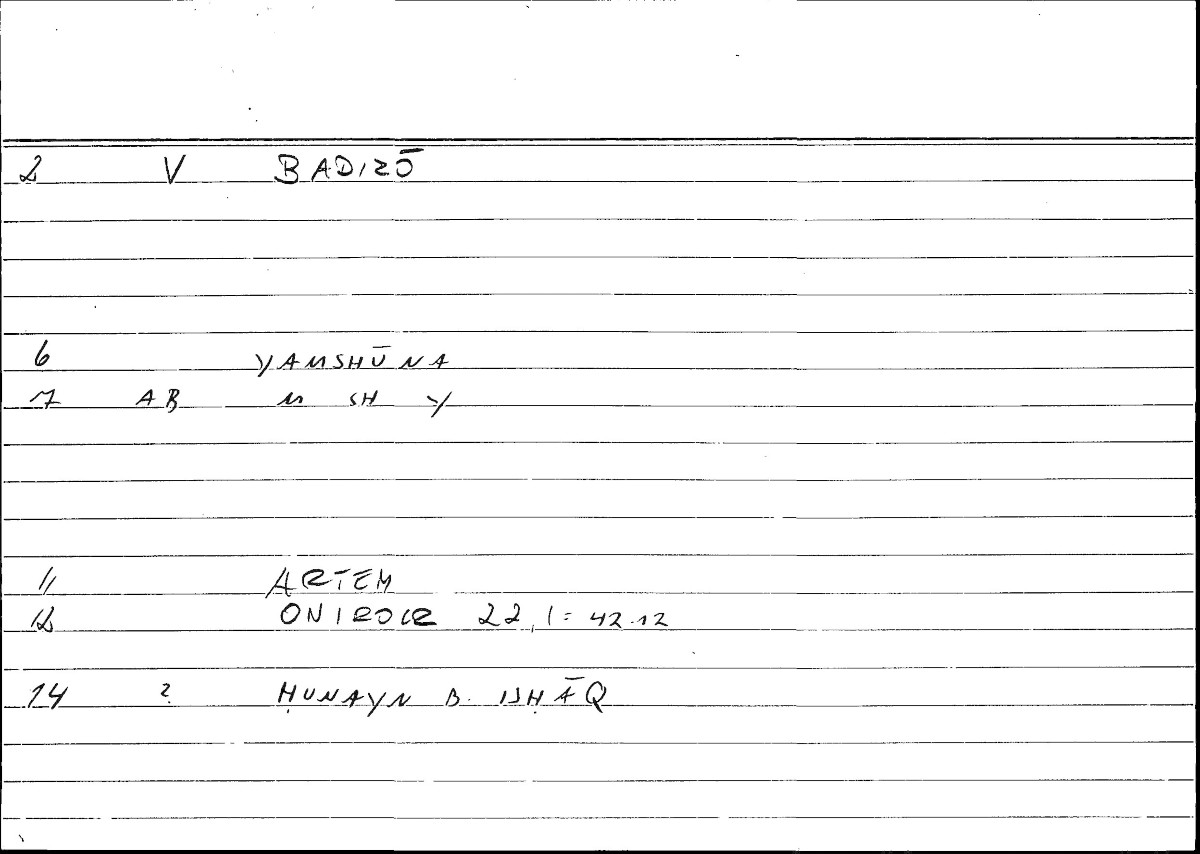 2 V BADIZŌ
6 YAMSHŪNA
7 AB M SH Y
11 ARTEM
12 ONIROCR 22,1= 42.12
14 ? ḤUNAYN B. ISḤĀQ